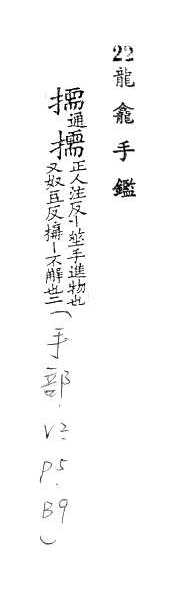 22龍龕手鑑
通擩正人注反丨手進物也又奴豆反搆丨不解也二(手部.V2.P5.B9)